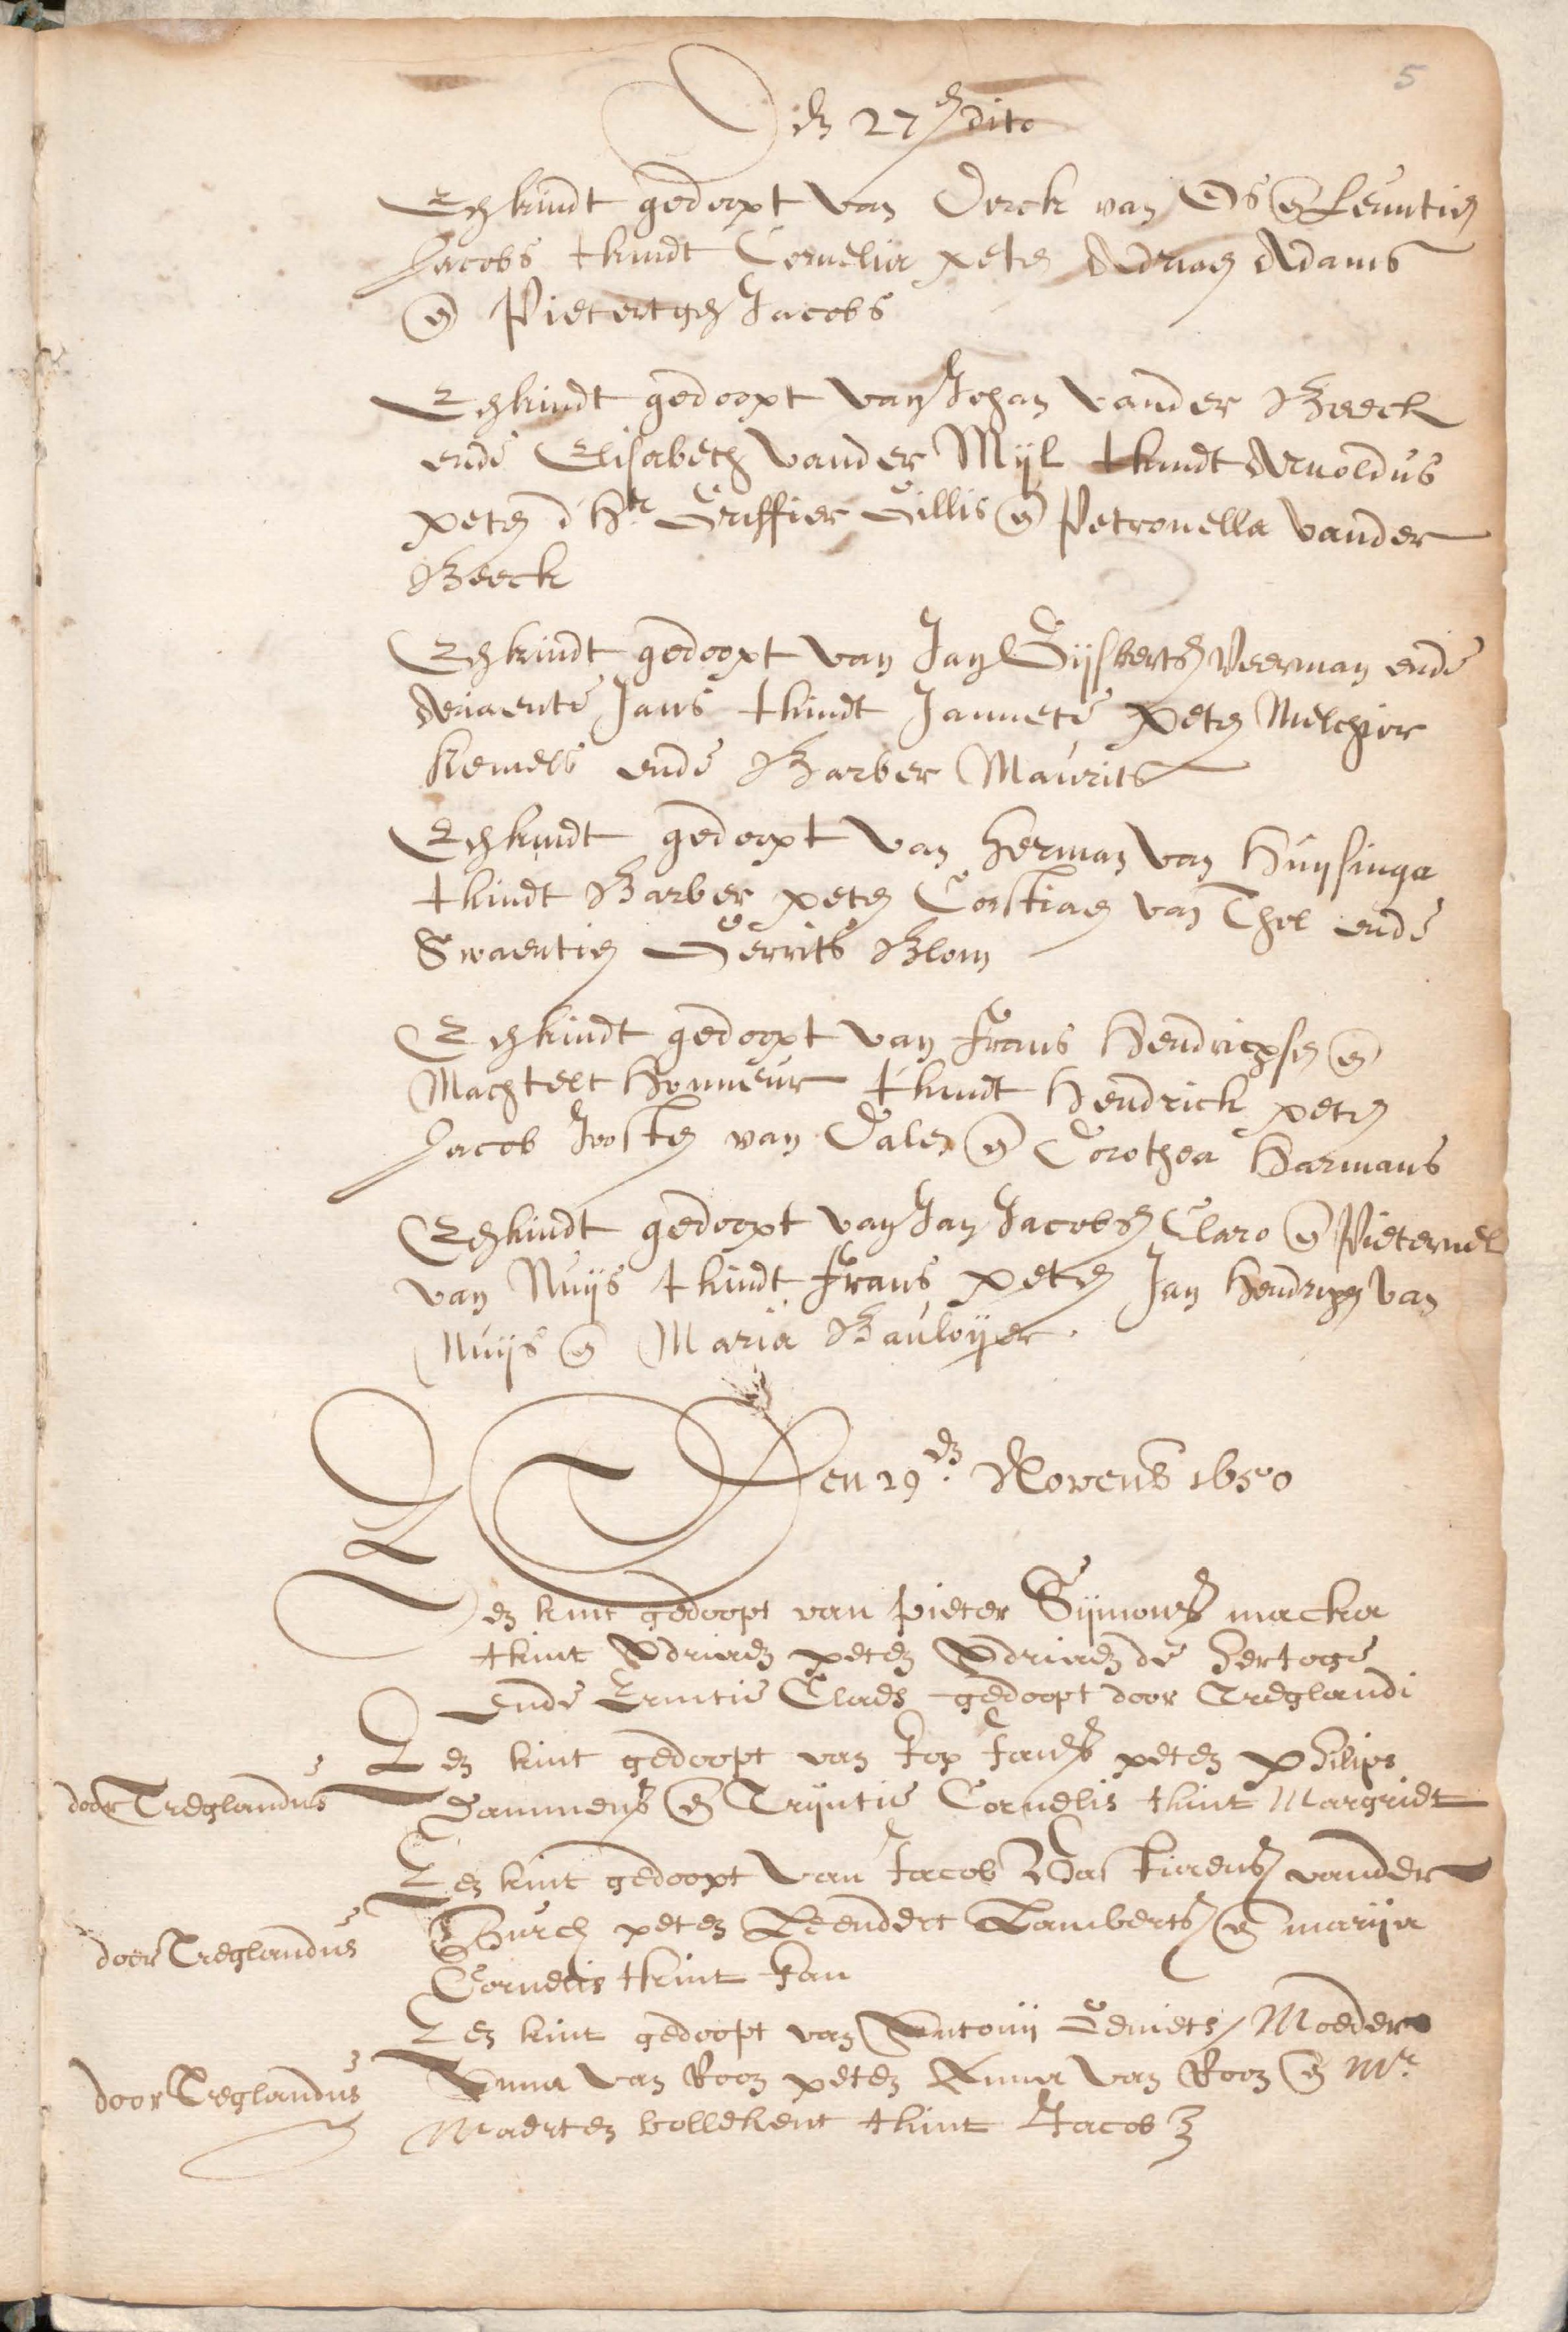 5
Den 27en dito
Een kindt gedoopt van Derck van Os en Leuntien
Jacobs t kindt Cornelia peten Adriaen Adams
en Pietertgen Jacobs
Een kindt gedoopt van Johan vander Beeck
ende Elisabeth vander Mijl t kindt Arnoldus
peten d Hr Griffier Gillis en Petronella vander
Beeck
Een kindt gedoopt van Jan Gijsberts Veerman ende
Ariaente Jans t kindt Jannete peten Melchior
ende Barber Maurits
Een kindt gedoopt van Herman van Huijsinga
t kindt Barber peten Corstiaen van Thol ende
Swaentien Gerrits Blom
Een kindt gedoopt van Frans Hendricxsen en
Machtelt Honneur t kindt Hendrick peten
Jacob Joosten van Dalen en Dorothea Harmans
Een kindt gedoopt van Jan Jacobsen Claro en Pieternel
van Nuijs t kindt Frans peten Jan Hendricxen van
Nuijs en Maria Bauloijer.
Den 29en Novemb 1650
Een kint gedoopt van pieter Sijmons macka
t kint Adriaen peten Adriaen de Hertoge
Ende Erntie Claes gedoopt door Treglandi
Een kint gedoopt van Jop Jans peten philips
door Treglandus
Dammens en Trijntie Cornelis t kint Margriet
Een kint gedoopt van Jacob Bastiaens vander
Burch peten Leendert Lamberts en marija
door Treglandus
Cornelis t kint Jan
Een kint gedoopt van Antonij Moeder
Anna van Roon peten Anna van Roon en Mr
door Treglandus
Maerten vollekent t kint Jacob